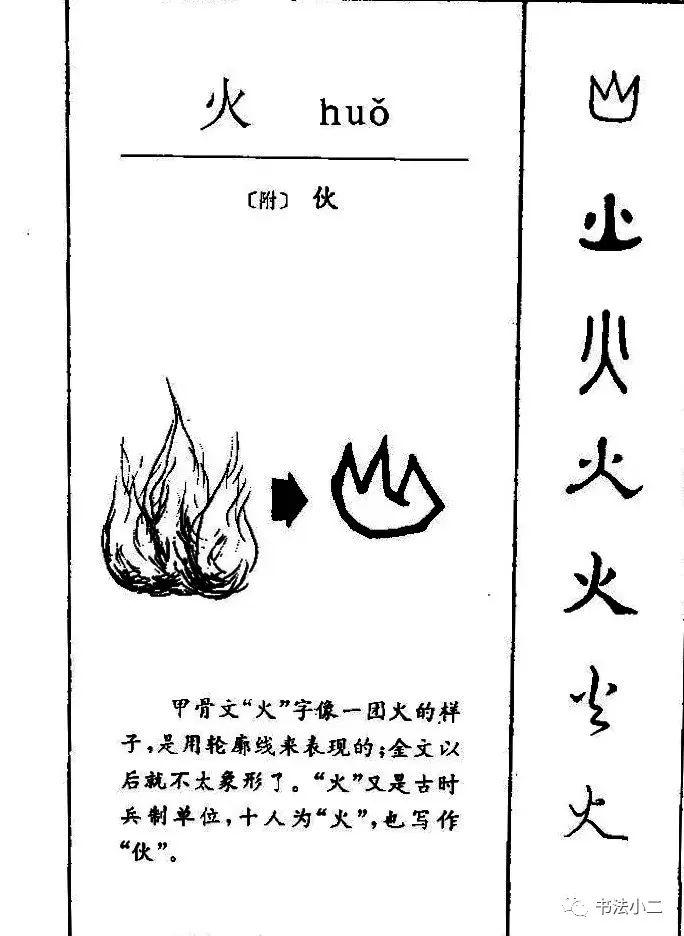 火 huǒ
〔附〕 伙
甲骨文“火”字像一团火的样
子，是用轮廓线来表现的；金文以
后就不太象形了。“火”又是古时
兵制单位，十人为“火”，也写作
“伙”。
火
火
火
火
火
火
火
书法小二